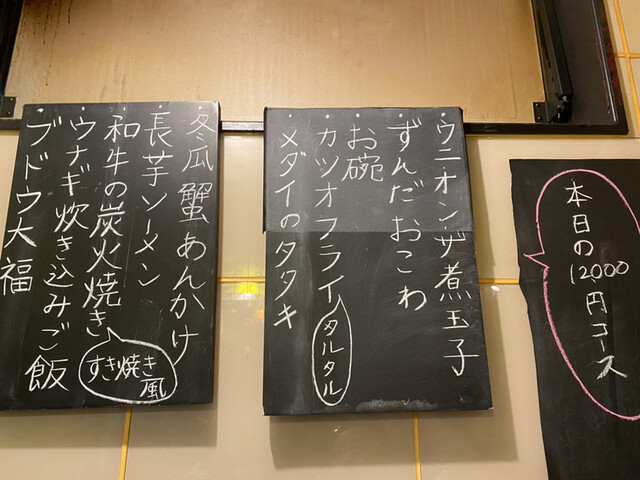 本日の
12000円コース
ウニオンザ煮玉子
ずんだおこわ
お碗
カツオフライ
タルタル
メダイのタタキ
冬瓜蟹あんかけ
長芋ソーメン
和牛の炭火焼き
すき焼き
風
ウナギ炊き込みご飯
ブドウ大福